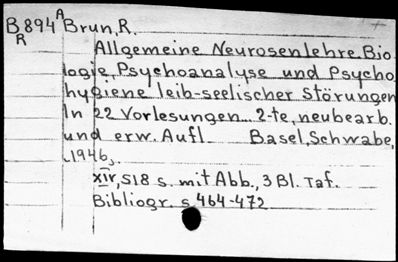 B894 A Brun, R.
R
Allgemeine Neurosenlehre. Bio
logie, Psychoanalyse und Psycho
hygiene leib-seelischer Störungen
In 22 Vorlesungen... 2-te, neubearb.
und erw. Aufl. Basel, Schwabe,
1946,
XIV, 518 s. mit Abb., 3 Bl. Taf.
Bibliogr. s 464-472